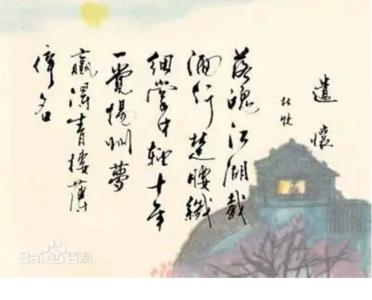 遣懷
杜牧
落魄江湖載
酒行楚腰纖
細掌中輕十年
一覺揚州夢
贏得青樓薄
倖名
Bai百科